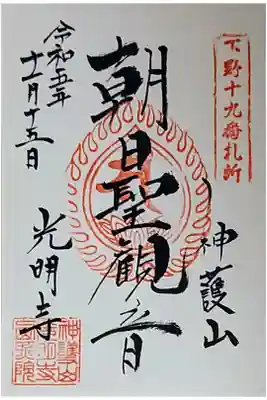 下野十九番札所
神護山
朝日聖観音
光明寺
令和五年
十一月十五日
神護山